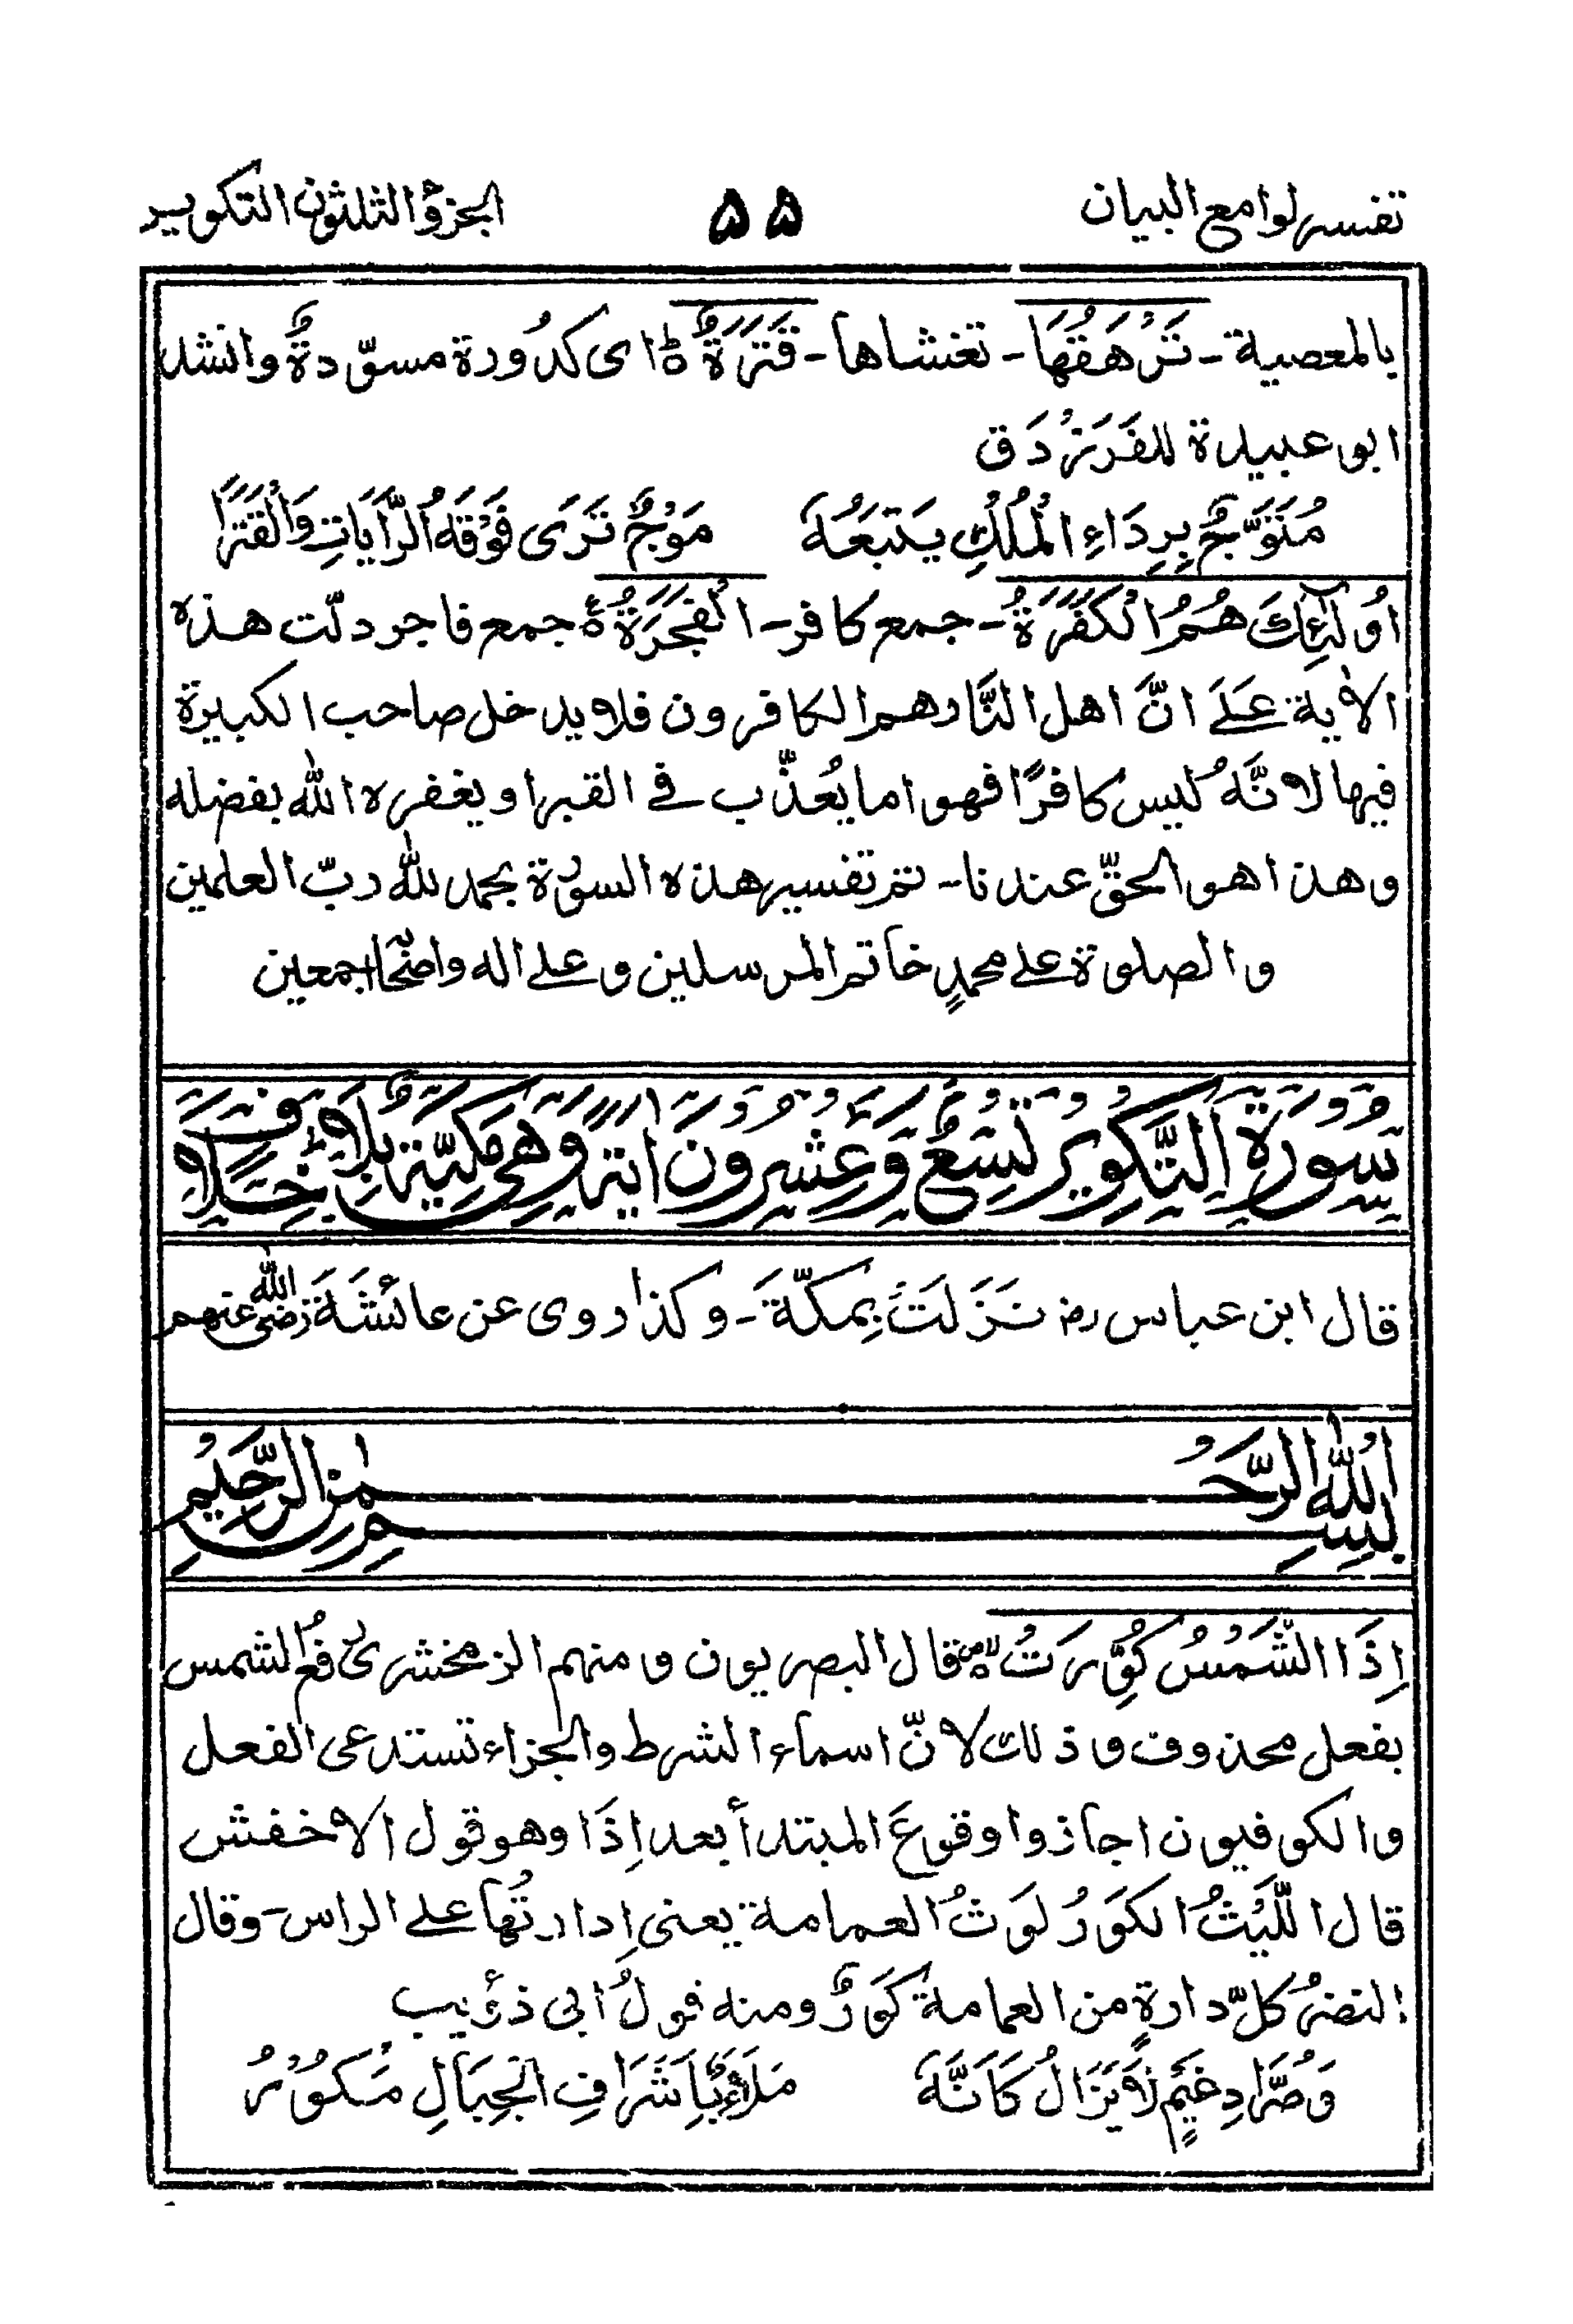 تفسير لوامع البيان ۵۵ الجزؤ الثلثون التكوير
بالمعصية - تَرْهَقُهَا - تغشاها - قَتَرَةٌ ؕ اى كدُورة مسوّدةٌ وانشد
ابو عبيدة للفَرَزْدَق
مُتَوَّجٌ بِرِدَاءِ الْمُلْكِ يَتْبَعُهٗ مَوْجٌ تَرَى فَوْقَهُ الرَّايَاتِ وَالْقَتَرَا
اُولٰٓئِكَ هُمُ الْكَفَرَةُ - جمع كافر - الْفَجَرَةُ ۀ جمع فاجر دلّت هذه
الاٰية عَلَے انّ اهل النَّار هم الكافرون فلا يدخل صاحب الكبيرة
فيها لانَّهٗ ليس كافرًا فهو اما يُعذّب فے القبر او يغفره الله بفضله
وهذا هو الحقّ عندنا - تم تفسير هذه السورة بحمد لله ربّ العلمين
والصلوة علے محمدٍ خاتم المرسلين وعلے اله واصحٰبه اجمعين
سُورَةُ التَّكْوِيرِ تِسْعٌ وَعِشْرُونَ اٰيَةً وَهِيَ مَكِّيَّةٌ بِلَا خِلَافٍ
قال ابن عباس رض نَزَلَتْ بِمكّةَ - وكذا روى عن عائشَةَ رضى الله عنهم
بِسْمِ اللهِ الرَّحْمٰنِ الرَّحِيْمِ
اِذَا الشَّمْسُ كُوِّرَتْ قال البصريون ومنهم الزمخشرى رفع الشمس
بفعل محذوف وذلك لانّ اسماء الشرط والجزاء تستدعى الفعل
والكوفيون اجازوا وقوعَ المبتدأ بعد اِذَا وهو قول الاخفش
قال اللَّيْثُ الكَوَرُ لَوَثُ العمامة يعنى اِدارتُها علے الراس - وقال
النضرُ كلّ دارةٍ من العمامة كَوَرٌ ومنه قولُ ابى ذؤيب
وَصُرَّادِ غَيْمٍ لَا يَزَالُ كَاَنَّهٗ مَلَاءٌ بِاَشْرَافِ الْجِبَالِ مَكُوْرُ